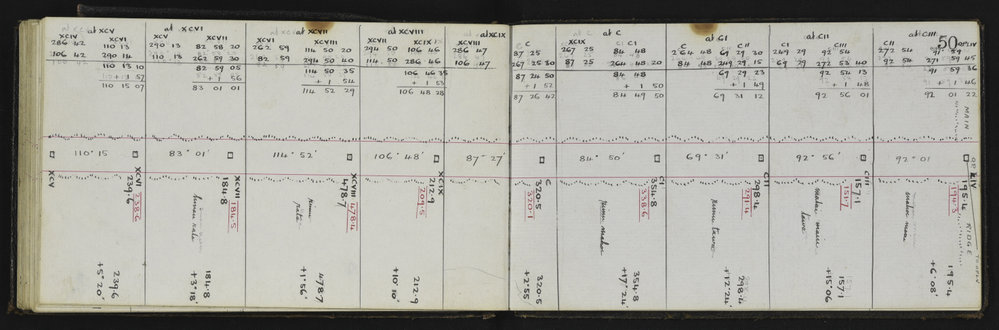 at XCV
XCIV XCVI
286 42 110 13
106 42 290 14
110 13 10
+1 57
110 15 07
at XCVI
XCV XCVII
290 13 82 58 20
110 13 262 59 30
82 59 05
+1 56
83 01 01
at XCVII
XCVI XCVIII
262 59 114 50 20
82 59 294 50 40
114 50 35
+1 54
114 52 29
at XCVIII
XCVII XCIX
294 50 106 46
114 50 286 46
106 46 35
+1 53
106 48 28
at XCIX
XCVIII
286 47
106 47
C
87 25
267 25 30
87 24 50
+1 52
87 26 42
at C
XCIX CI
267 25 84 48
87 25 264 48 20
84 48
+1 50
84 49 50
at CI
C CII
264 48 69 29 30
84 48 249 29 15
69 29 23
+1 49
69 31 12
at CII
CI CIII
249 29 92 54
69 29 272 53 40
92 54 13
+1 48
92 56 01
at CIII
50
CII CIV
272 54 91 59
92 54 271 59 45
91 59 36
+1 46
92 01 22
110° 15
83° 01'
114° 52'
106° 48'
87° 27'
84° 50'
69° 31'
92° 56'
92° 01
MAIN
OR
RIDGE
XCV
XCVI
239.6
238.6
239.6
+5° 20'
XCVII
184.8
184.5
184.8
+3° 18'
XCVIII
478.7
478.4
478.7
+1° 56'
XCIX
212.9
209.5
212.9
+10° 10'
C
320.5
320.1
320.5
+2° 55'
CI
354.8
338.6
354.8
+17° 24'
CII
298.4
291.4
298.4
+12° 24'
CIII
157.1
151.7
157.1
+15° 06
CIV
195.4
194.3
195.4
+6° 08'